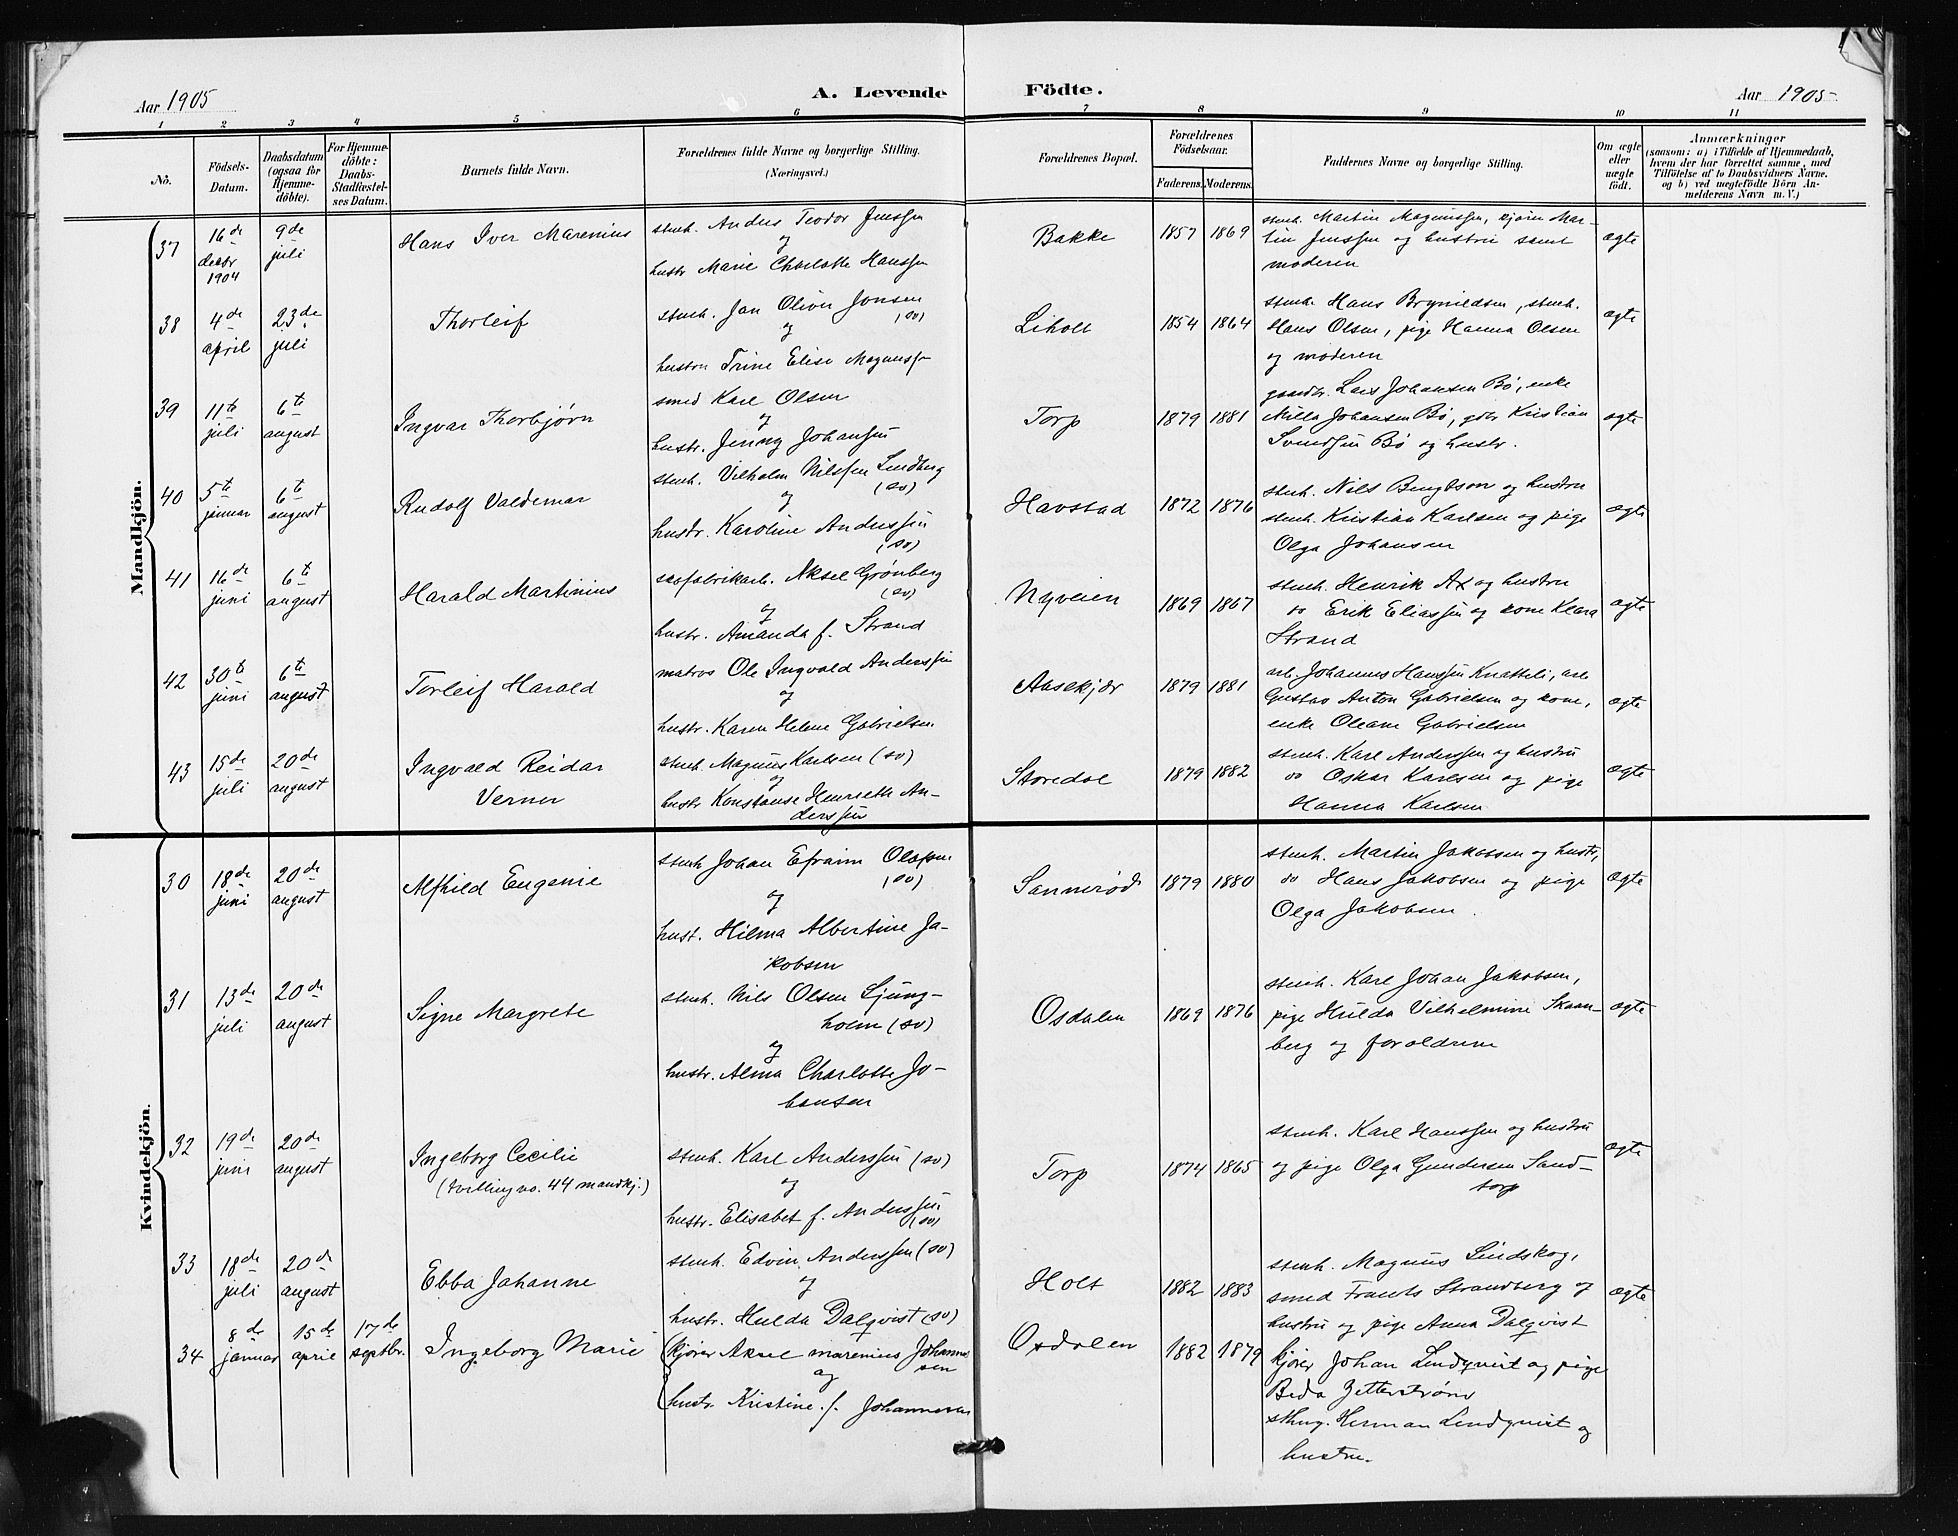 Aar 1905
A. Levende Födte.
Aar 1905
1 2 3 4 5 6 7 8 9 10 11
No.
Födsels-
Datum.
Daabsdatum
(ogsaa för
Hjemme-
döbte).
For Hjemme-
döbte:
Daabs-
Stadfæstel-
ses Datum.
Barnets fulde Navn.
Forældrenes fulde Navne og borgerlige Stilling.
(Næringsvei.)
Forældrenes Bopæl.
Forældrenes
Födselsaar.
Faderens. Moderens.
Faddernes Navne og borgerlige Stilling.
Om ægte
eller
uægte
födt.
Anmærkninger
(saasom: a) i Tilfælde af Hjemmedaab,
hvem der har forrettet samme, med
Tilföielse af to Daabsvidners Navne.
og b) ved uægtefödte Börn An-
melderens Navn m. V.)
Mandkjön.
37
16de
decbr
1904
9de
juli
Hans Iver Marenius
stenh. Anders Teodor Jenssen
og
hustr Marie Charlotte Hanssen
Bakke
1857 1869
stenh. Martin Magnussen, kjørm Mar-
tin Jenssen og hustru samt
moderen
ægte
38
4de
april
23de
juli
Thorleif
stenh. Jan Oliver Jonsen
(sv)
og
hustru Trine Elise Magnussen
Liholt
1854 1864
stenh. Hans Brynildsen, stenh.
Hans Olsen, pige Hanna Olsen
og moderen
ægte
39
11te
juli
6te
august
Ingvar Thorbjørn
smed Karl Olsen
og
hustr. Jenny Johansen
Torp
1879 1881
gaardbr. Lars Johansen Bø, enke
Milla Johansen Bø, gbr Kristian
Svendsen Bø og hustr.
ægte
40
5te
januar
6te
august
Rudolf Valdemar
stenh. Vilhelm Nilssen Lindberg
(sv)
og
hustr. Karoline Anderssen
(sv)
Havstad
1872 1876
stenh. Nils Bengtson og hustru
stenh. Kristian Karlsen og pige
Olga Johansen
ægte
41
16de
juni
6te
august
Harald Martinius
skofabrikarb. Aksel Grønberg
(sv)
og
hustr. Amanda f. Strand
Nyveien
1869 1867
stenh. Henrik Ax og hustru
do Erik Eliassen og kone Klara
Strand
ægte
42
30te
juni
6te
august
Torleif Harald
matros Ole Ingvald Anderssen
og
hustr. Karen Helene Gabrielsen
Aasekjær
1879 1881
arb. Johannes Hanssen Knatteli, arb
Gustav Anton Gabrielsen og kone,
enke Oleane Gabrielsen
ægte
43
15de
juli
20de
august
Ingvald Reidar
Verner
stenh. Magnus Karlsen (sv)
og
hustr Konstanse Henriette An-
derssen
Storedal
1879 1882
stenh. Karl Anderssen og hustru
do Oskar Karlsen og pige
Hanna Karlsen
ægte
Kvindekjön.
30
18de
juni
20de
august
Alfhild Eugenie
stenh Johan Efraim Olafsen
(sv)
og
hust. Hilma Albertine Ja-
kobsen
Sannerød
1879 1880
stenh. Martin Jakobsen og hustr,
do Hans Jakobsen og pige
Olga Jakobsen
ægte
31
13de
juli
20de
august
Signe Margrete
stenh. Nils Olsen Ljung-
holm (sv)
og
hustr. Alma Charlotte Jo-
hansen
Osdalen
1869 1876
stenh. Karl Johan Jakobsen,
pige Hulda Vilhelmine Skaan-
berg og forældrene
ægte
32
19de
juni
20de
august
Ingeborg Cecilie
(tvilling no. 44 mandkj.)
stenh. Karl Anderssen (sv)
og
hustr. Elisabet f. Anderssen
(sv)
Torp
1874 1865
stenh. Karl Hanssen og hustru
og pige Olga Gundersen Sand-
torp
ægte
33
18de
juli
20de
august
Ebba Johanne
stenh. Edvin Anderssen (sv)
og
hustr. Hulda Dalqvist (sv)
Holt
1882 1883
stenh. Magnus Lindskog,
smed Frants Strandberg og
hustru og pige Anna Dalqvist
ægte
34
8de
januar
15de
april
17de
septbr.
Ingeborg Marie
kjører Aksel Marenius Johanne
sen
og
hustr. Kristine f. Johannesen
Osdalen
1882 1879
kjører Johan Lindqvist og pige
Beda Zetterstrøm
sthug. Herman Lindqvist og
hustru.